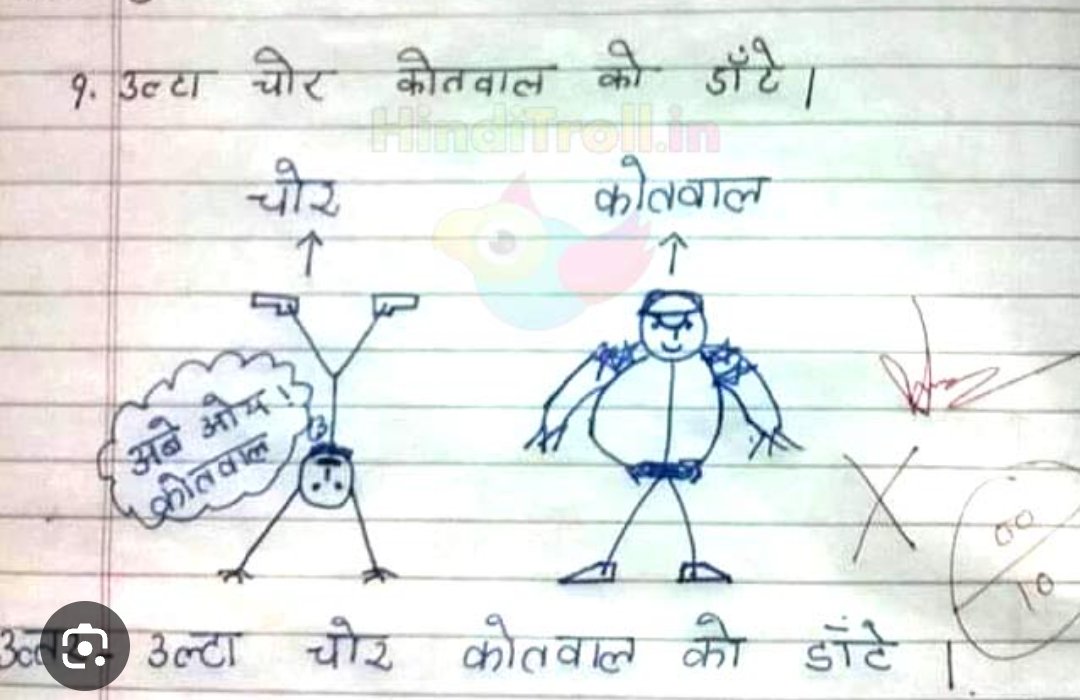 १. उल्टा चोर कोतवाल को डाँटे।
HindiTroll.in
चोर
कोतवाल
अबे ओय!
कोतवाल
00
10
उत्तर- उल्टा चोर कोतवाल को डाँटे।